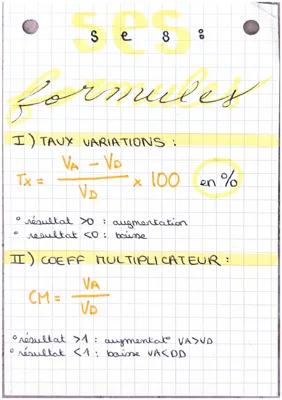 ses
ses:
formules
I) TAUX VARIATIONS :
Tx = VA - VD / VD x 100 en %
° résultat >0 : augmentation
° resultat <0 : baisse
II) COEFF MULTIPLICATEUR :
CM = VA / VD
° résultat >1 : augmentat° VA>VD
° résultat <1 : baisse VA<DD